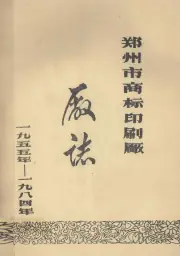 郑州市商标印刷厰
厰誌
一九五五年—一九八四年